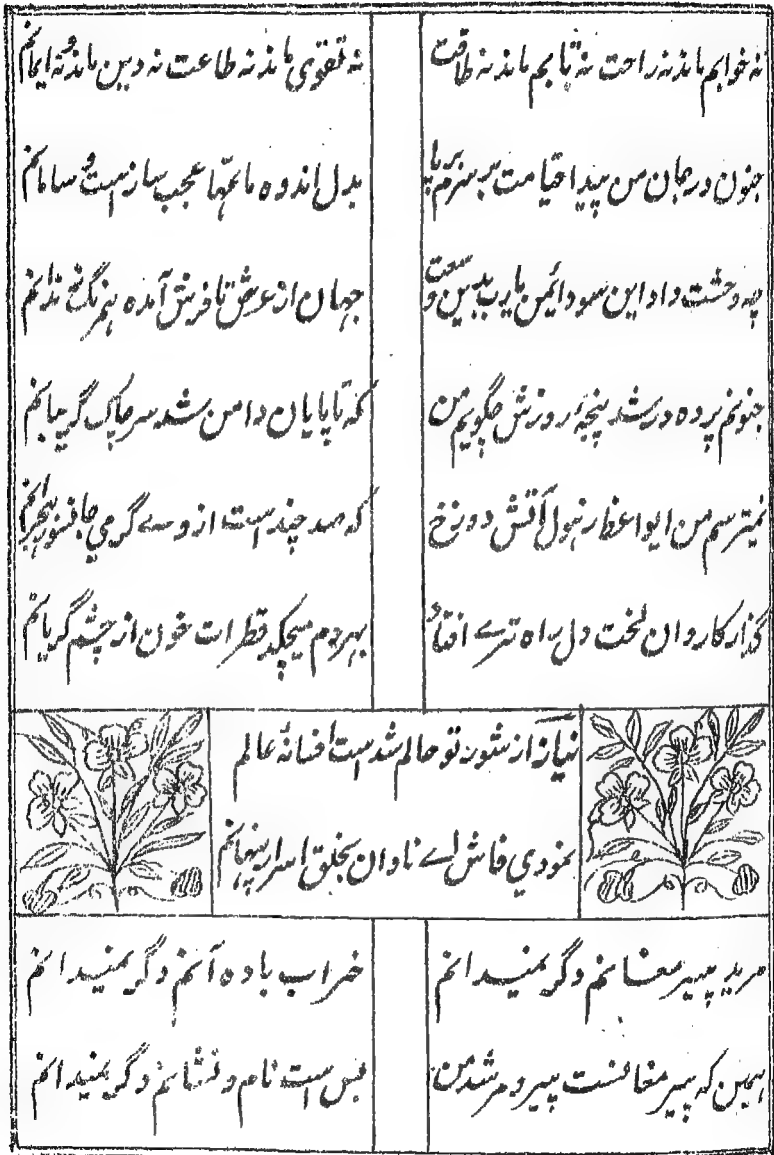 نه خوابم ماند نه راحت نه تابم ماند نه طاقت
نه تقوی ماند نه طاعت نه دین ماند و نه ایمانم
جنون در جان من پیدا قیامت بر سرم برپا
بدل اندوه ماتمها عجب ساز است و سامانم
چه وحشت داد این سودا ئیمن یارب ببین وسعت
جهان از عرش تا فرش آمده همرنگ زندانم
جنونم پرده در شد پنجهٔ زورش چگویم من
که تا پایان دامن شد سر چاک گریبانم
نمیترسم من ایواعظ ز هول آتش دوزخ
که صد چند است از وے گرمی جانسوز هجرانم
گذار کاروان لخت دل براه ترے افتاد
بهر دم میچکد قطرات خون از چشم گریانم
نیاز از شور تو حالم شد است افسانهٔ عالم
نمودی فاش اے نادان بخلق اسرار پنهانم
مرید پیر مغانم دگر نمیدانم
خراب بادهٔ آنم دگر نمیدانم
همین که پیر مغانست پیر و مرشد من
بس است نام و نشانم دگر نمیدانم